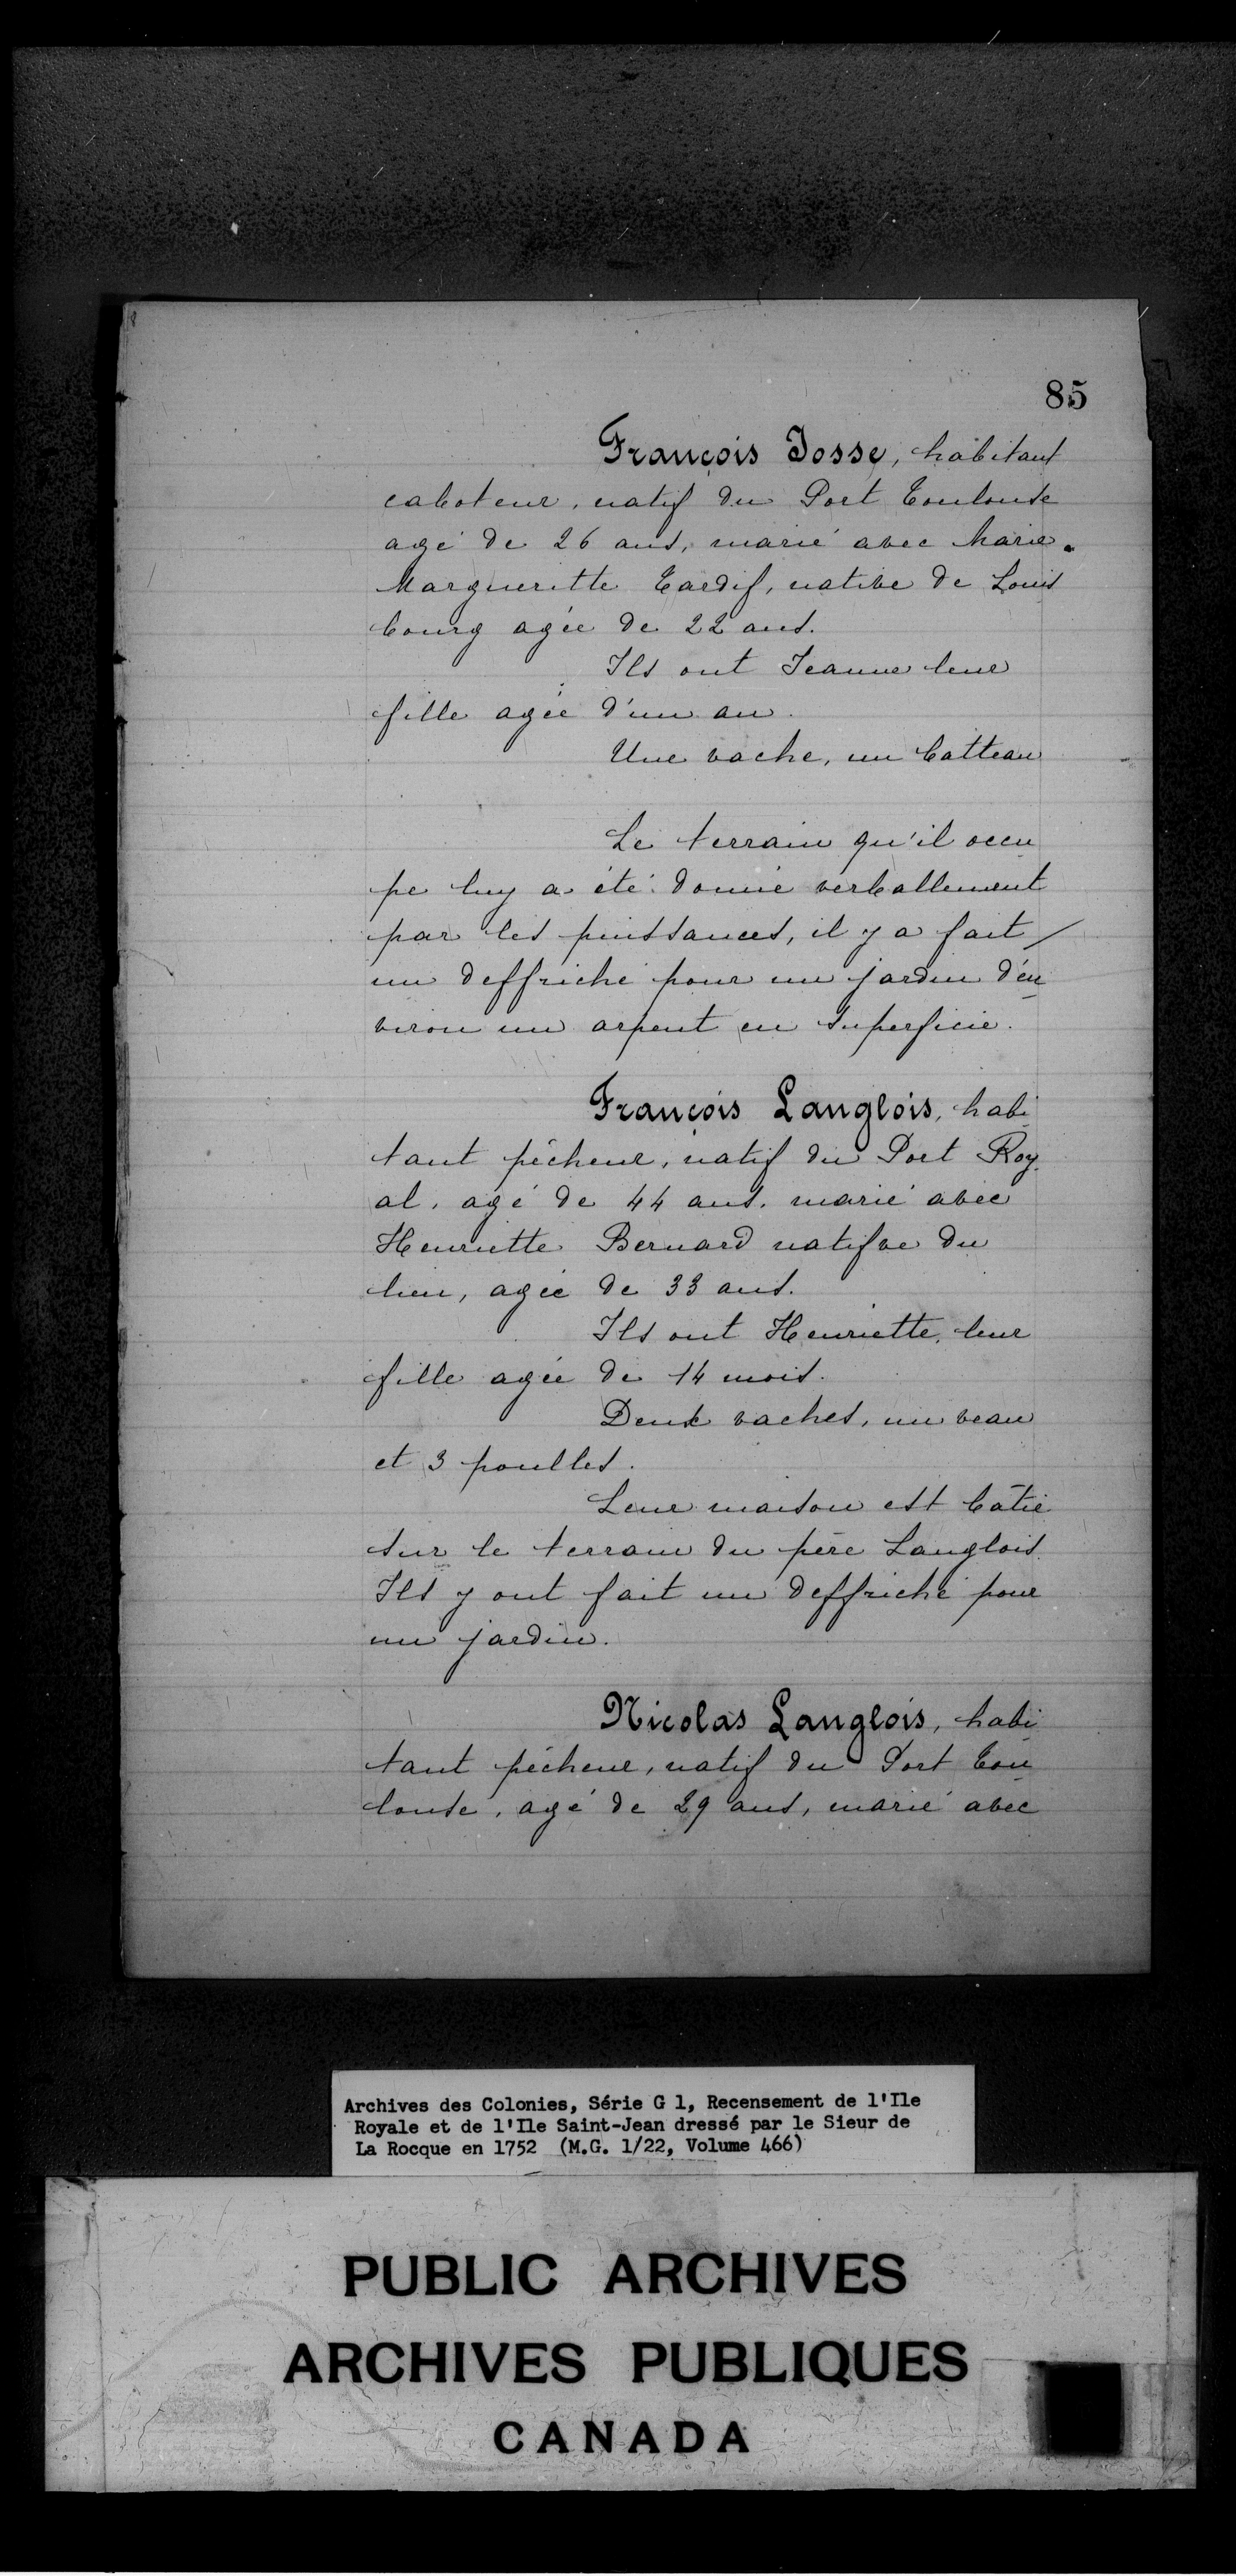 85
François Josse, habitant
caboteur, natif du Port Toulouse
agé de 26 ans, marié avec Marie.
Margueritte Tardif, native de Louis
bourg agée de 22 ans.
Ils ont Jeanne leur
fille agée d'un an.
Une vache, un batteau
Le terrain qu'il occu
pe luy a été donné verballement
par les puissances, il y a fait
un deffriché pour un jardin d'en
viron un arpent en superficie.
François Langlois, habi
tant pêcheur, natif du Port Roy
al, agé de 44 ans, marié avec
Henriette Bernard natifve du
lieu, agée de 33 ans.
Ils ont Henriette, leur
fille agée de 14 mois.
Deux vaches, un veau
et 3 poulles.
Leur maison est bâtie
sur le terrain du père Langlois.
Ils y ont fait un deffriché pour
un jardin.
Nicolas Langlois, habi
tant pêcheur, natif du Port Tou
louse, agé de 29 ans, marié avec
Archives des Colonies, Série G 1, Recensement de l'Ile
Royale et de l'Ile Saint-Jean dressé par le Sieur de
La Rocque en 1752 (M.G. 1/22, Volume 466)
PUBLIC ARCHIVES
ARCHIVES PUBLIQUES
CANADA